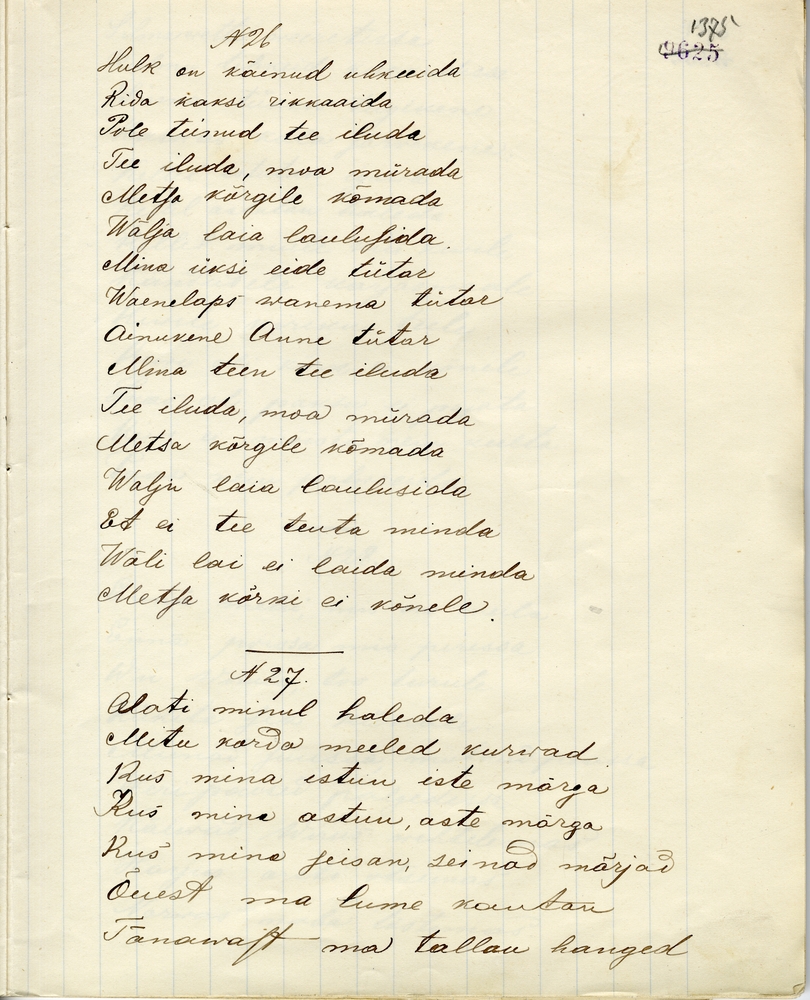 1375
9625
N 26
Hulk on käinud uhkeeida
Rida kaksi rikkaaida
Pole teinud tee iluda
Tee iluda, moa mürada
Metsa kõrgile kõmada
Wälja laia laulusida.
Mina üksi eide tütar
Waenelaps wanema tütar
Ainukene Anne tütar
Mina teen tee iluda
Tee iluda, moa mürada
Metsa kõrgile kõmada
Walju laia laulusida
Et ei tee teuta minda
Wäli lai ei laida minda
Metsa kõrki ei kõnele.
N 27.
Alati minul haleda
Mitu korda meeled kurwad
Kus mina istun iste märga
Kus mina astun, aste märga
Kus mina seisan, seinad märjad
Õuest ma lume kautan
Tänawast ma tallan hanged